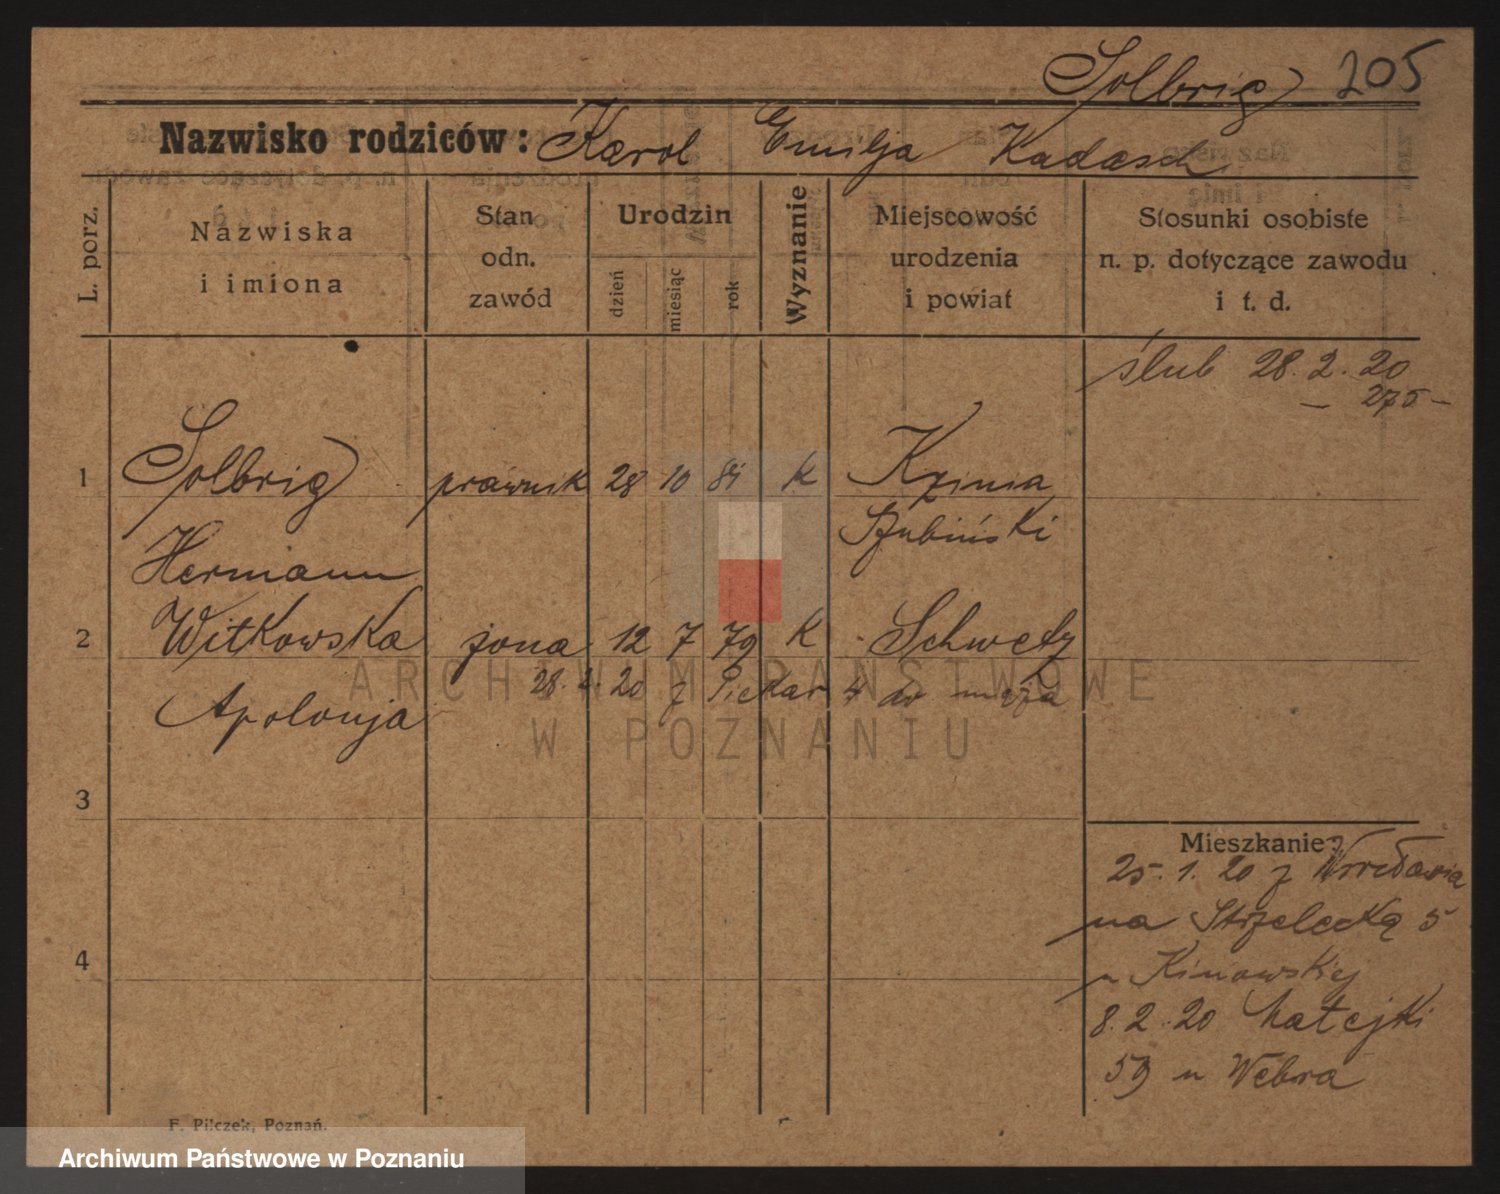 Solbrig 205
Nazwisko rodziców: Karol Emilja Kadasch
L. porz.
Nazwiska
i imiona
Stan
odn.
zawód
Urodzin
dzień
miesiąc
rok
Wyznanie
Miejscowość
urodzenia
i powiat
Stosunki osobiste
n. p. dotyczące zawodu
i t. d.
ślub 28. 2. 20
– 275 –
1 Solbrig prawnik 28 10 84 k Kzinia
Szubiński
Hermann
2 Witkowska żona 12 7 79 k Schwetz
28. 2. 20 z Piekar 4 do męża
Apolonja
3
4
Mieszkanie:
25. 1. 20 z Wrocławia
na Strzelecką 5
u Kinowskiej
8. 2. 20 Matejki
59 u Webra
F. Pilczek, Poznań.
ARCHIWUM PAŃSTWOWE
W POZNANIU
Archiwum Państwowe w Poznaniu